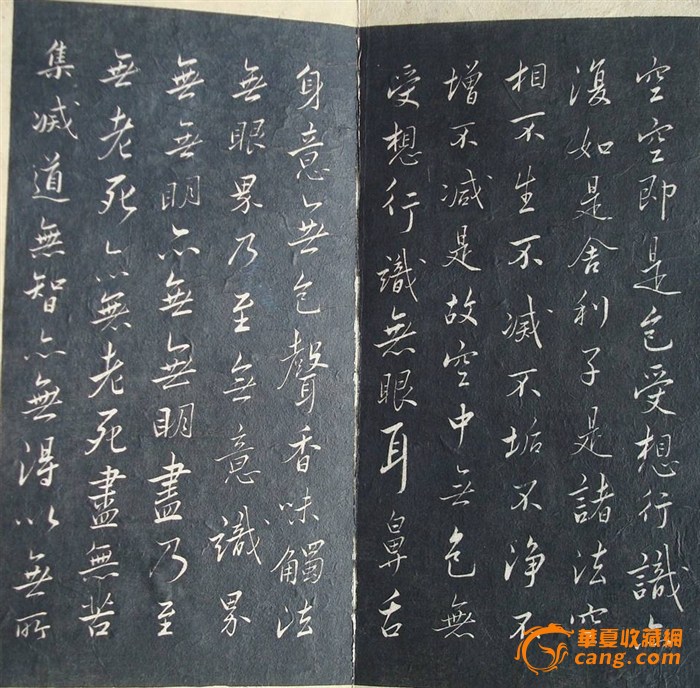 空空即是色受想行識亦
復如是舍利子是諸法空
相不生不滅不垢不淨不
增不減是故空中無色無
受想行識無眼耳鼻舌
身意無色聲香味觸法
無眼界乃至無意識界
無無明亦無無明盡乃至
無老死亦無老死盡無苦
集滅道無智亦無得以無所
華夏收藏網
cang.com